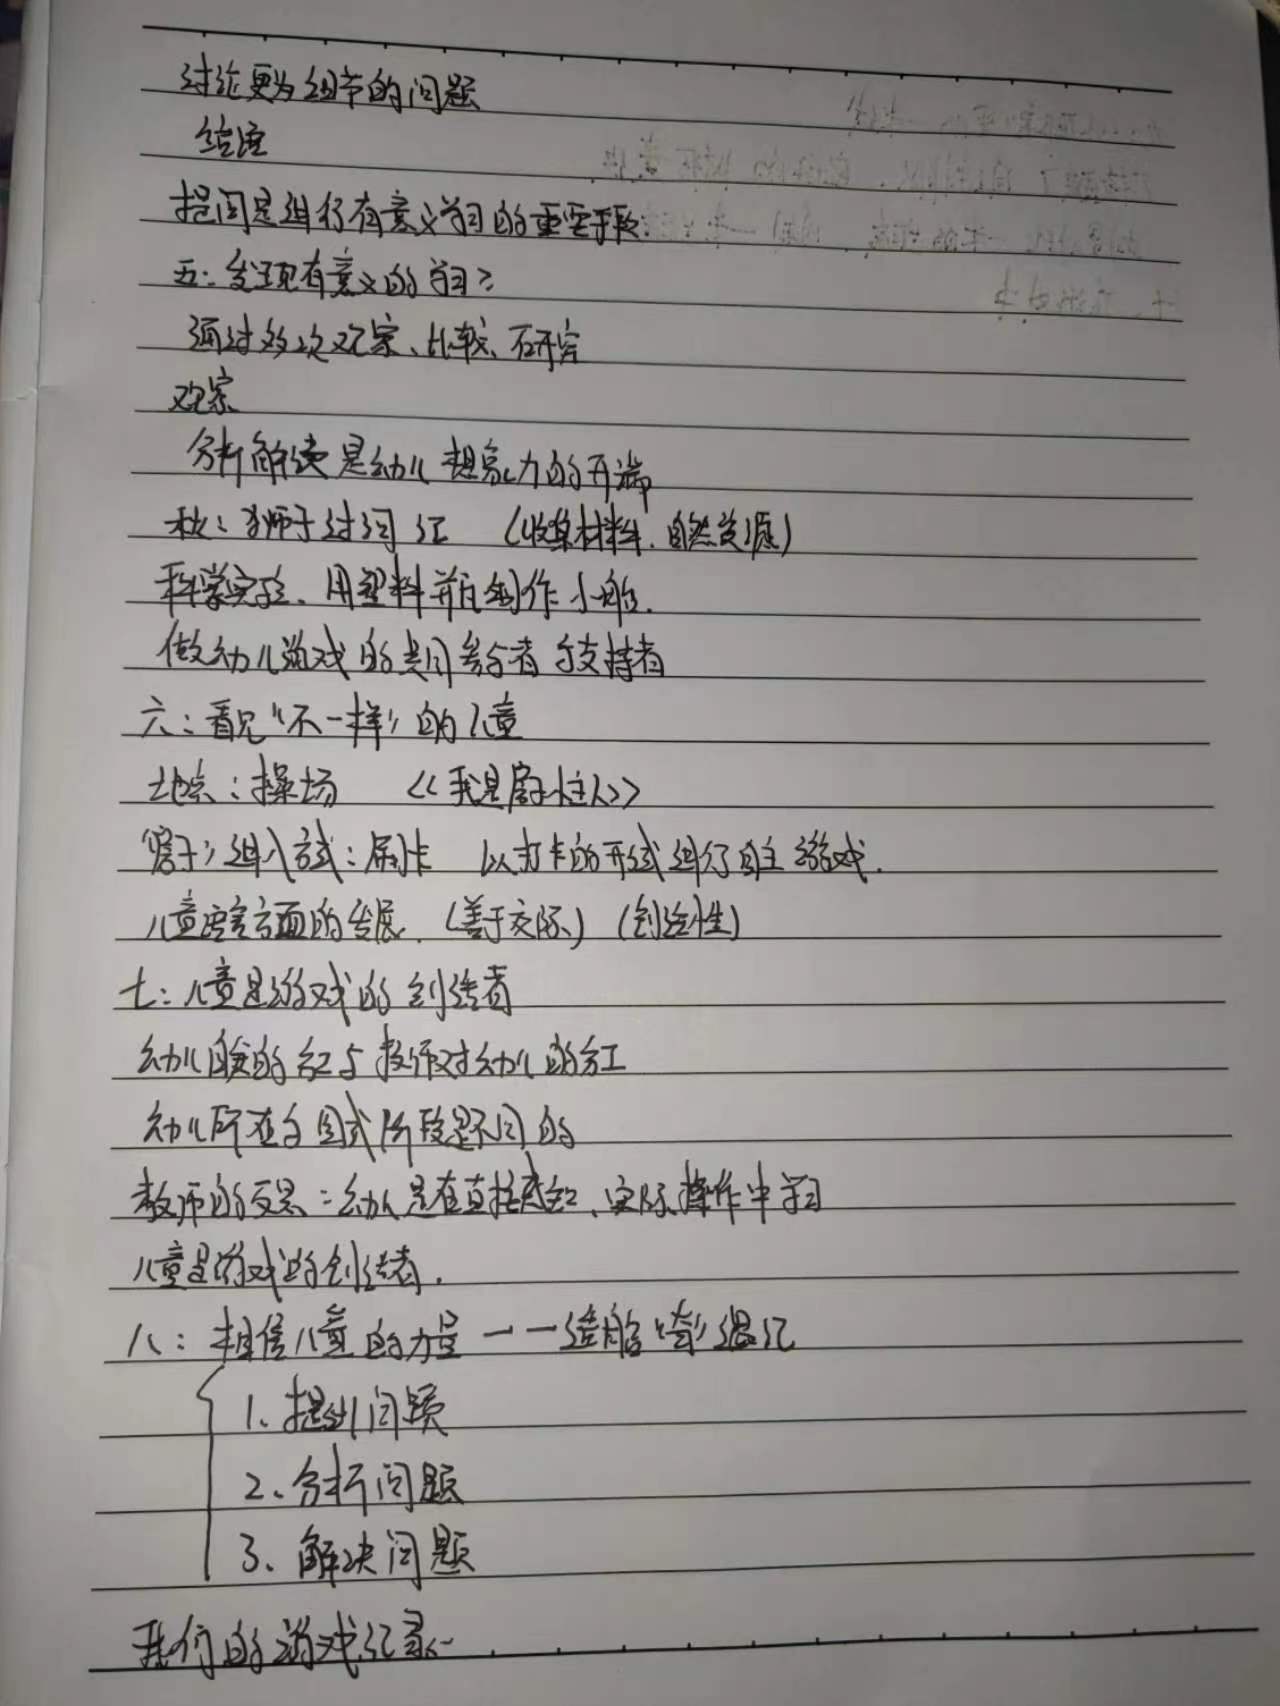 讨论更为细节的问题
结语
提问是进行有意义学习的重要手段
五：发现有意义的学习
通过多次观察、比较、研究
观察
分析解读是幼儿想象力的开端
秋：狮子过河 （收集材料、自然资源）
科学实验、用塑料瓶制作小船.
做幼儿游戏的共同参与者与支持者
六：看见“不一样”的儿童
地点：操场 《我是房主人》
进入方式：刷卡 以打卡的形式进行自主游戏.
儿童语言方面的发展.（善于交际）（创造性）
七：儿童是游戏的创造者
幼儿眼的红与教师对幼儿的红
幼儿所在的图式阶段是不同的
教师的反思：幼儿是在直接感知、实际操作中学习
儿童是游戏的创造者.
八：相信儿童的力量——造船“奇”遇记
1、提出问题
2、分析问题
3、解决问题
我们的游戏记录